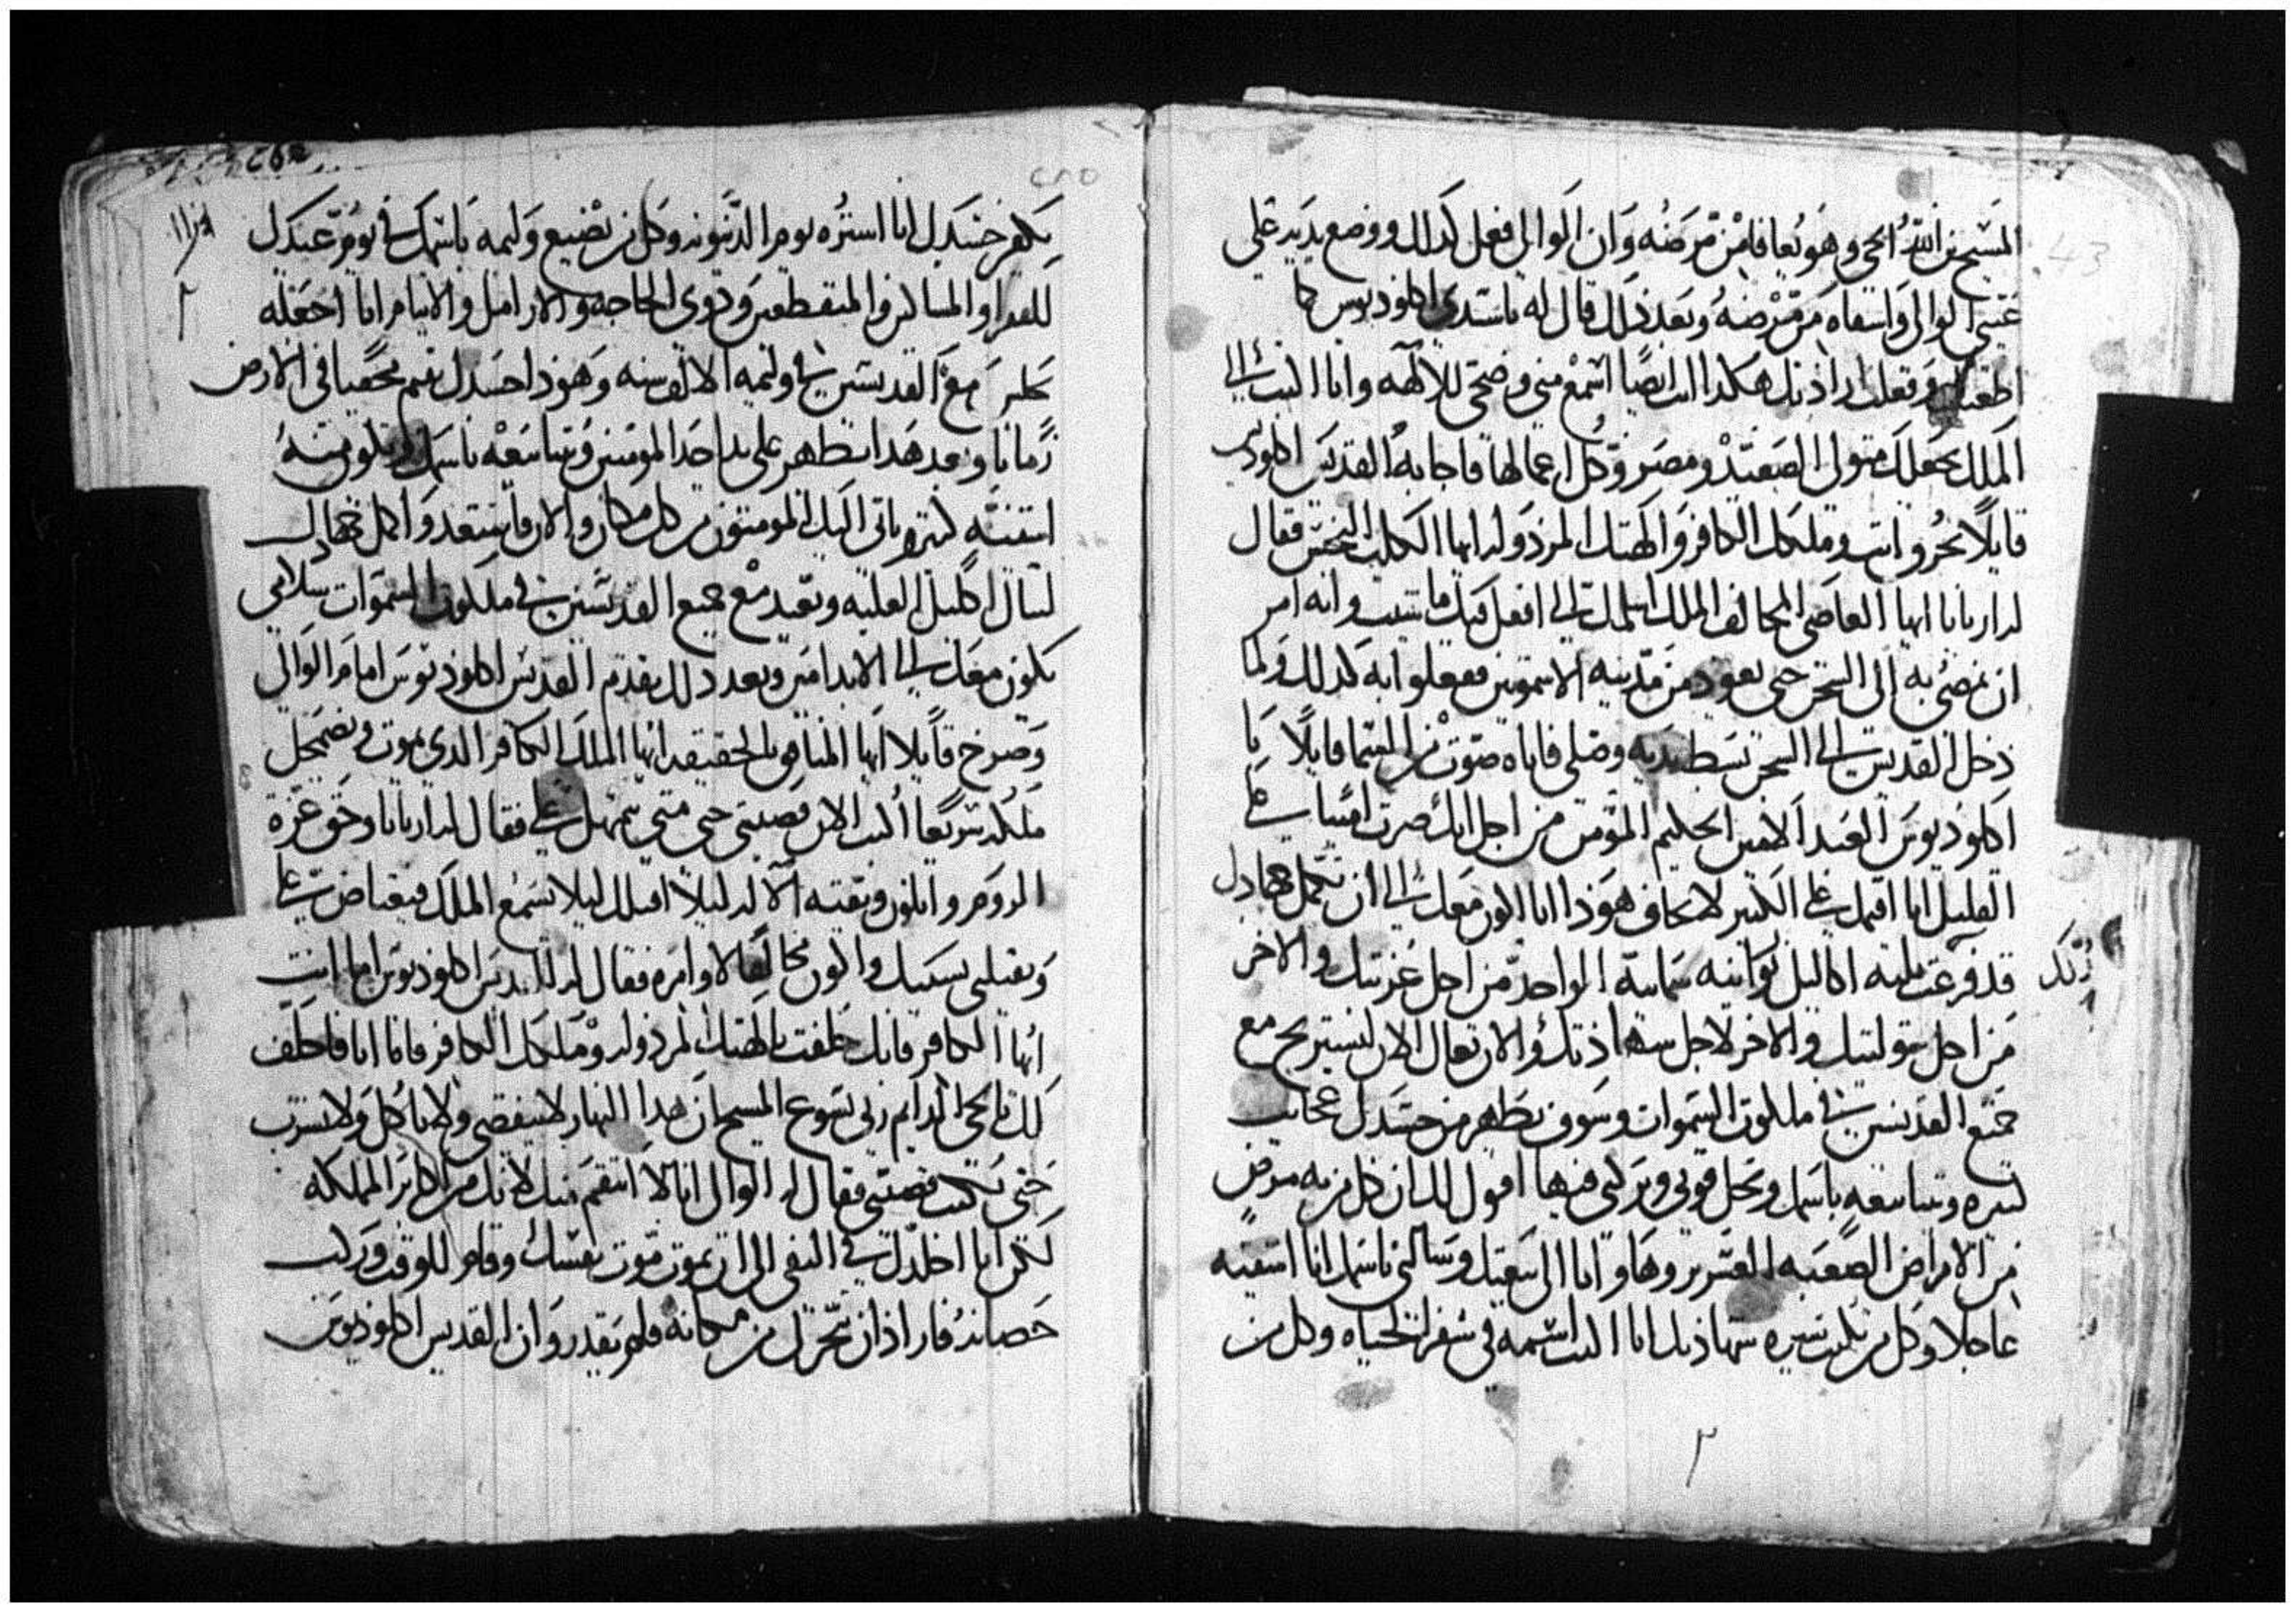 المسيح بن الله الحي وهو يعافا من مرضه وان الوالي فعل كدلك ووضع يديه علي
عيني الوالي واشفاه من مرضه وبعد ذلك قال له ياسيدي اكلوديوس كما
وفعلت ارادتك هكدا انت ايضا اسمع مني وضحي للالهه وانا اكتب الي
الملك يجعلك متولي الصعيد ومصر وكل اعمالها فاجابه القديس اكلوديوس
قايلا تحرو انت وملكك الكافر والهتك المرذوله ايها الكلب النجس فقال
له اريانا ايها العاصي المخالف الملك اسلمك الي افعل فيك ما شيت وانه امر
ان يمضي به الي السجن حتي يعود من مدينه الاشمونين ففعلوا به كدلك ولما
دخل القديس الي السجن بسط يديه وصلي فاتاه صوت من السما قايلا يا
اكلوديوس العبد الامين الحكيم المؤمن من اجل انك صرت امينا في
القليل انا اقيمك علي الكثير لا تخاف هوذا انا اكون معك الي ان تكمل جهادك
قد فرغت ثلثه اكاليل نورانيه سمايية الواحد من اجل غربتك والاخر
من اجل بتوليتك والاخر لاجل شهادتك والان تعال الان لتستريح مع
جميع القديسين في ملكوت السموات وسوف تظهر من جسدك عجايب
كتيره وتبنا بيعه باسمك وتحل قوتي وبركتي فيها اقول لك ان كل من به مرض
من الامراض الصعبه العسره وهاوتا الي بيعتك وسالني باسمك انا اشفيه
عاجلا وكل من يكتب سيره شهادتك انا اكتب اسمه في سفر الحياه وكل من
يكفن جسدك انا استره يوم الدينونه وكل من يصنع وليمه باسمك في يوم عيدك
للفقرا والمساكين والمنقطعين ودوي الحاجه والارامل والايتام انا اجعله
يجلس مع القديسين في وليمه الالف سنه وهوذا جسدك يقيم مخفيا في الارض
زمانا وبعد هدا يظهر علي يد احد المومنين وتبنا بيعه باسمك ويكون منه
اشفيه كتيره وياتي اليك المومنون من كل مكان والان فاستعد واكمل جهادك
لتنال اكليل الغلبه وتعيد مع جميع القديسين في ملكوت السموات سلامي
يكون معك الي الابد امين وبعد ذلك تقدم القديس اكلوديوس امام الوالي
وصرخ قايلا ايها المنافق بالحقيقه ايها الملك الكافر الدي يموت ويضمحل
ملكه سريعا اكتب الان قضيتي حتي متي تتمهل علي فقال له اريانا وحق عزة
الروم وابلون وبقيه الالهه ليلا اقتلك ليلا يسمع الملك فيغتاض علي
ويقتلني بسببك واكون مخالفا لاوامره فقال له القديس اكلوديوس اما انت
ايها الكافر فانك حلفت بالهتك المرذوله وملكك الكافر فاما انا فاحلف
لك بالحي الدايم ربي يسوع المسيح ان هدا النهار لا ينقضي ولا تاكل ولا تشرب
حتي تكتب قضيتي فقال له الوالي انا لا انتقم منك لانك من اكابر المملكه
لكن انا اخليك في النفي الي ان تموت موت نفسك وقام للوقت وركب
حصانه فاراد ان يتحرك من مكانه فلم يقدر وان القديس اكلوديوس